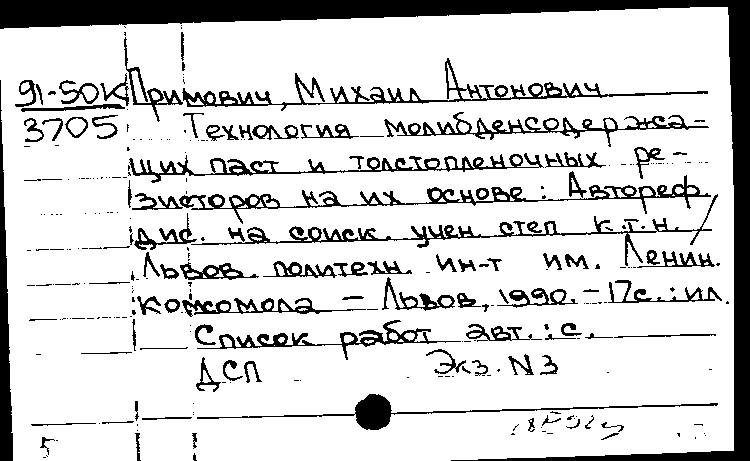 91-50К Примович, Михаил Антонович
3705 Технология молибденсодержа-
щих паст и толстопленочных ре-
зисторов на их основе: Автореф.
дис. на соиск. учен. степ. к.т.н. /
Львов. политехн. ин-т им. Ленин.
комсомола - Львов, 1990. - 17с.: ил.
Список работ авт.: с.
ДСП Экз. N3
5